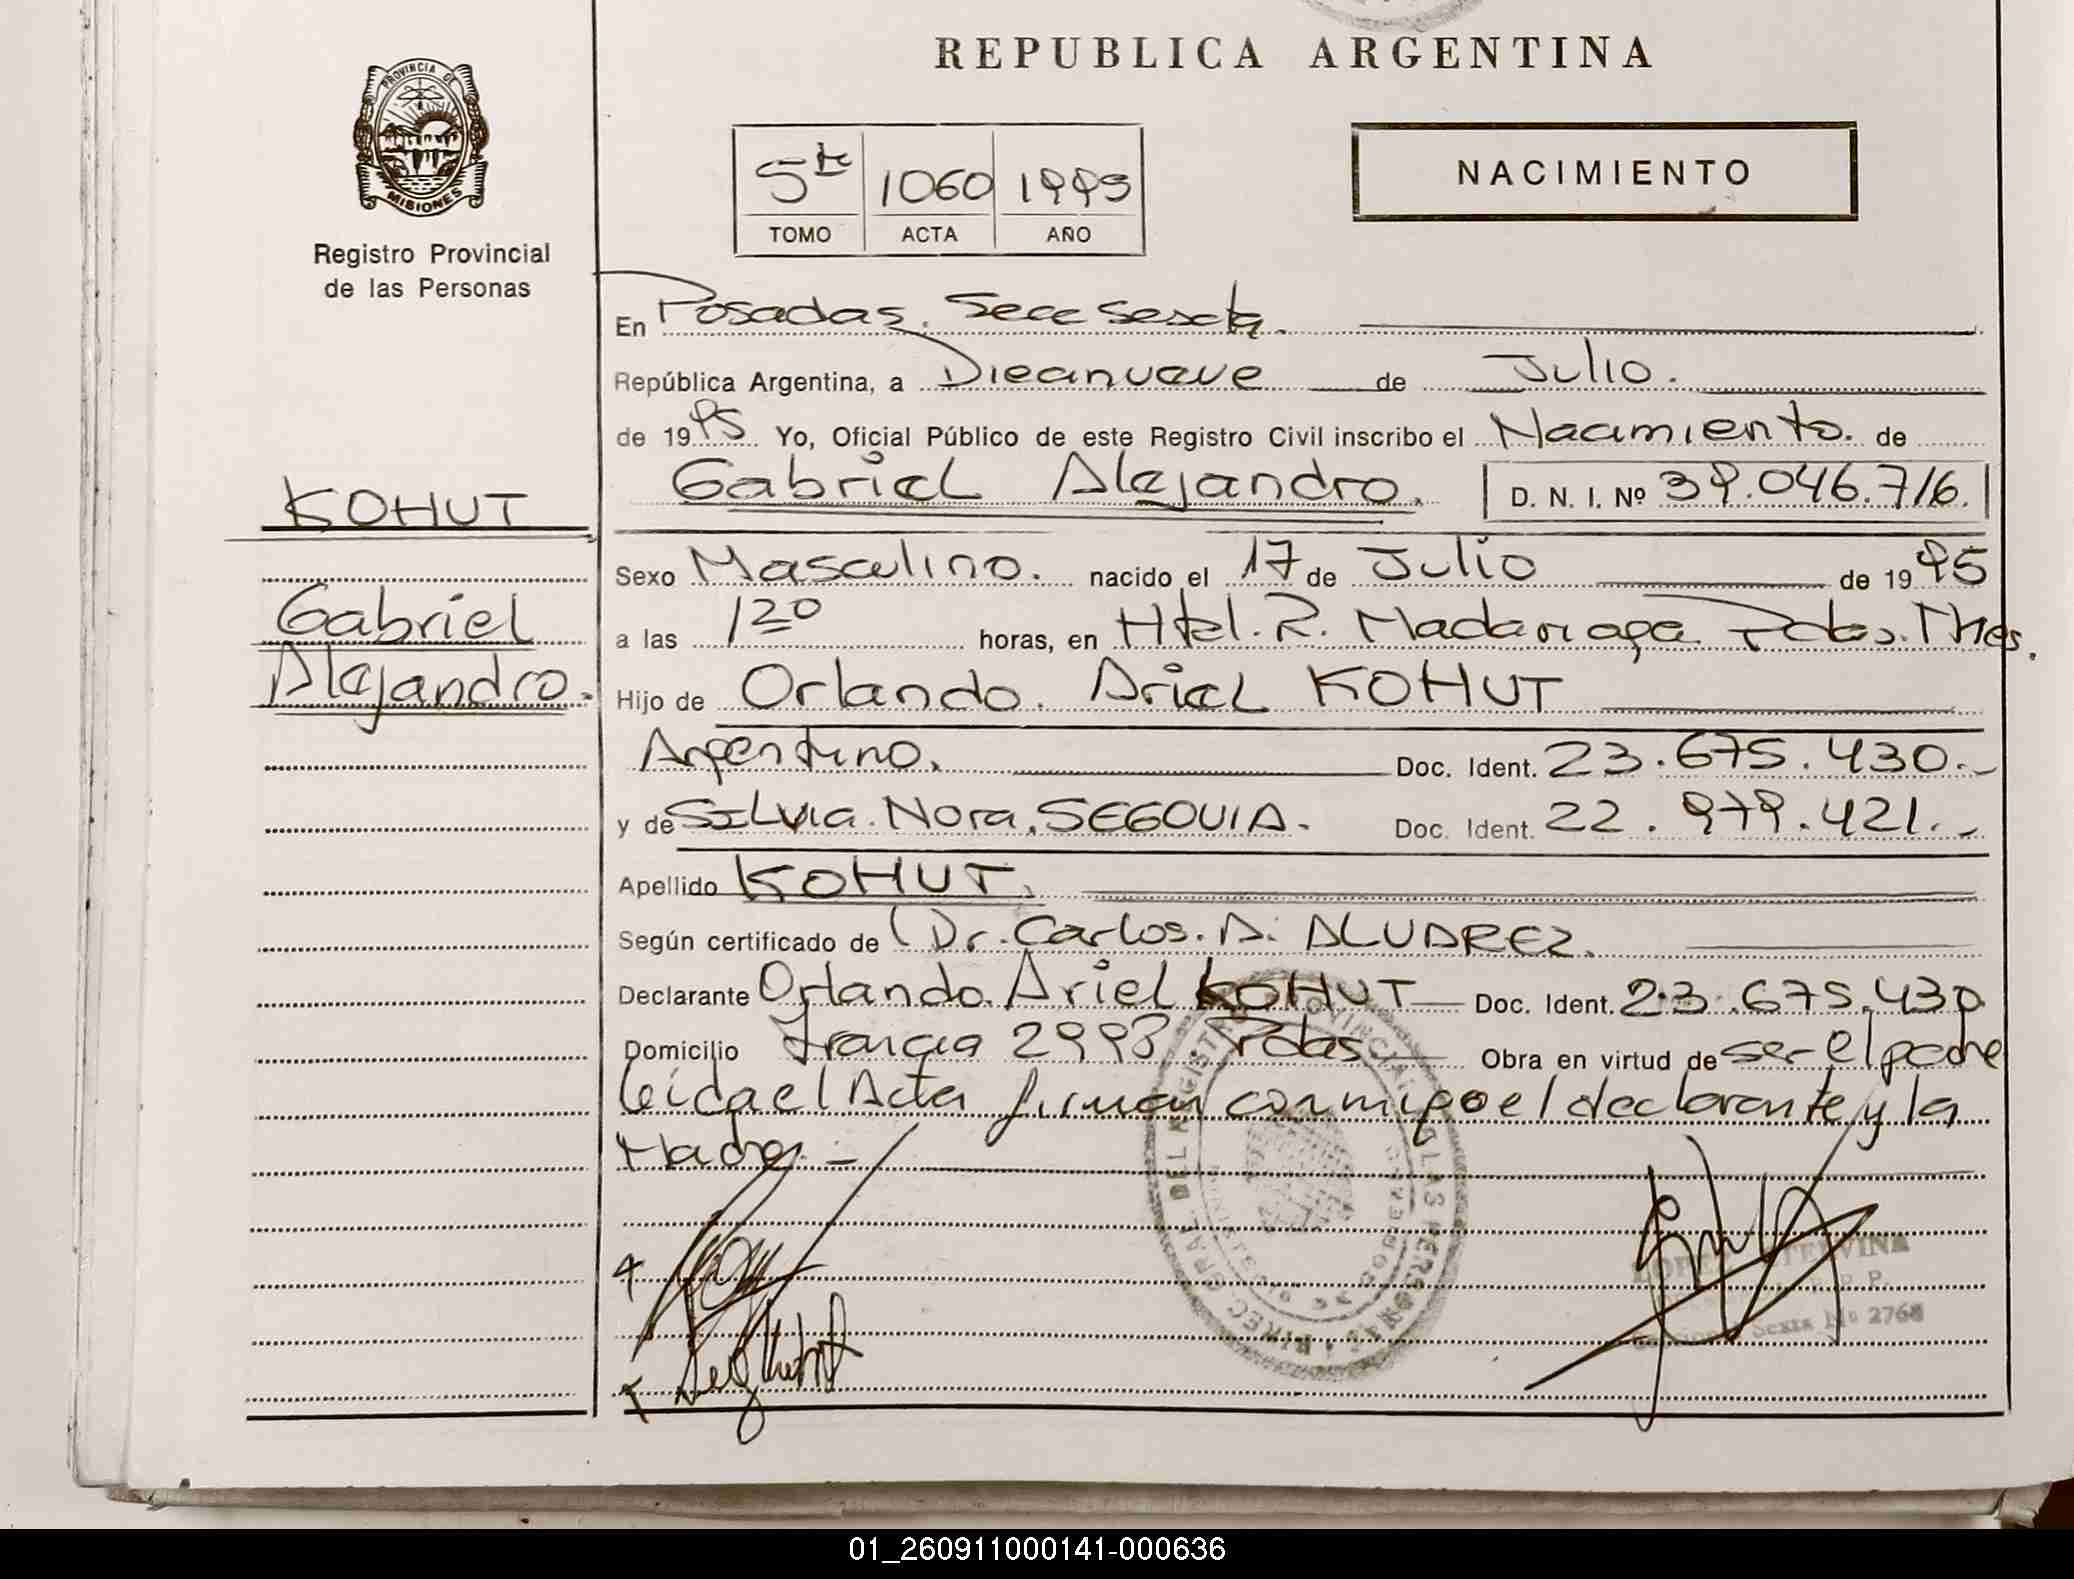 REPUBLICA ARGENTINA
PROVINCIA DE
MISIONES
Registro Provincial
de las Personas
5to 1060 1995
TOMO ACTA AÑO
NACIMIENTO
En Posadas. Secc Sexta.
República Argentina, a Diecinueve de Julio.
de 1995 Yo, Oficial Público de este Registro Civil inscribo el Nacimiento. de
Gabriel Alejandro. D. N. I. Nº 39.046.716.
KOHUT
Gabriel
Alejandro.
Sexo Masculino. nacido el 17 de Julio de 1995
a las 1 20 horas, en Htal. R. Madariaga Pdas. Mnes.
Hijo de Orlando. Ariel KOHUT
Argentino. Doc. Ident. 23.675.430.-
y de Silvia. Nora. SEGOVIA. Doc. Ident. 22.979.421.-
Apellido KOHUT.
Según certificado de Dr. Carlos. A. ALVAREZ.
Declarante Orlando. Ariel KOHUT Doc. Ident. 23.675.430
Domicilio Francia 2993. Pdas Obra en virtud de ser el padre
leida el Acta firman conmigo el declarante y la
Madre. -
DIREC. GRAL. DEL REGISTRO PROVINCIAL DE LAS PERSONAS
Sexta Nº 2768
01_260911000141-000636